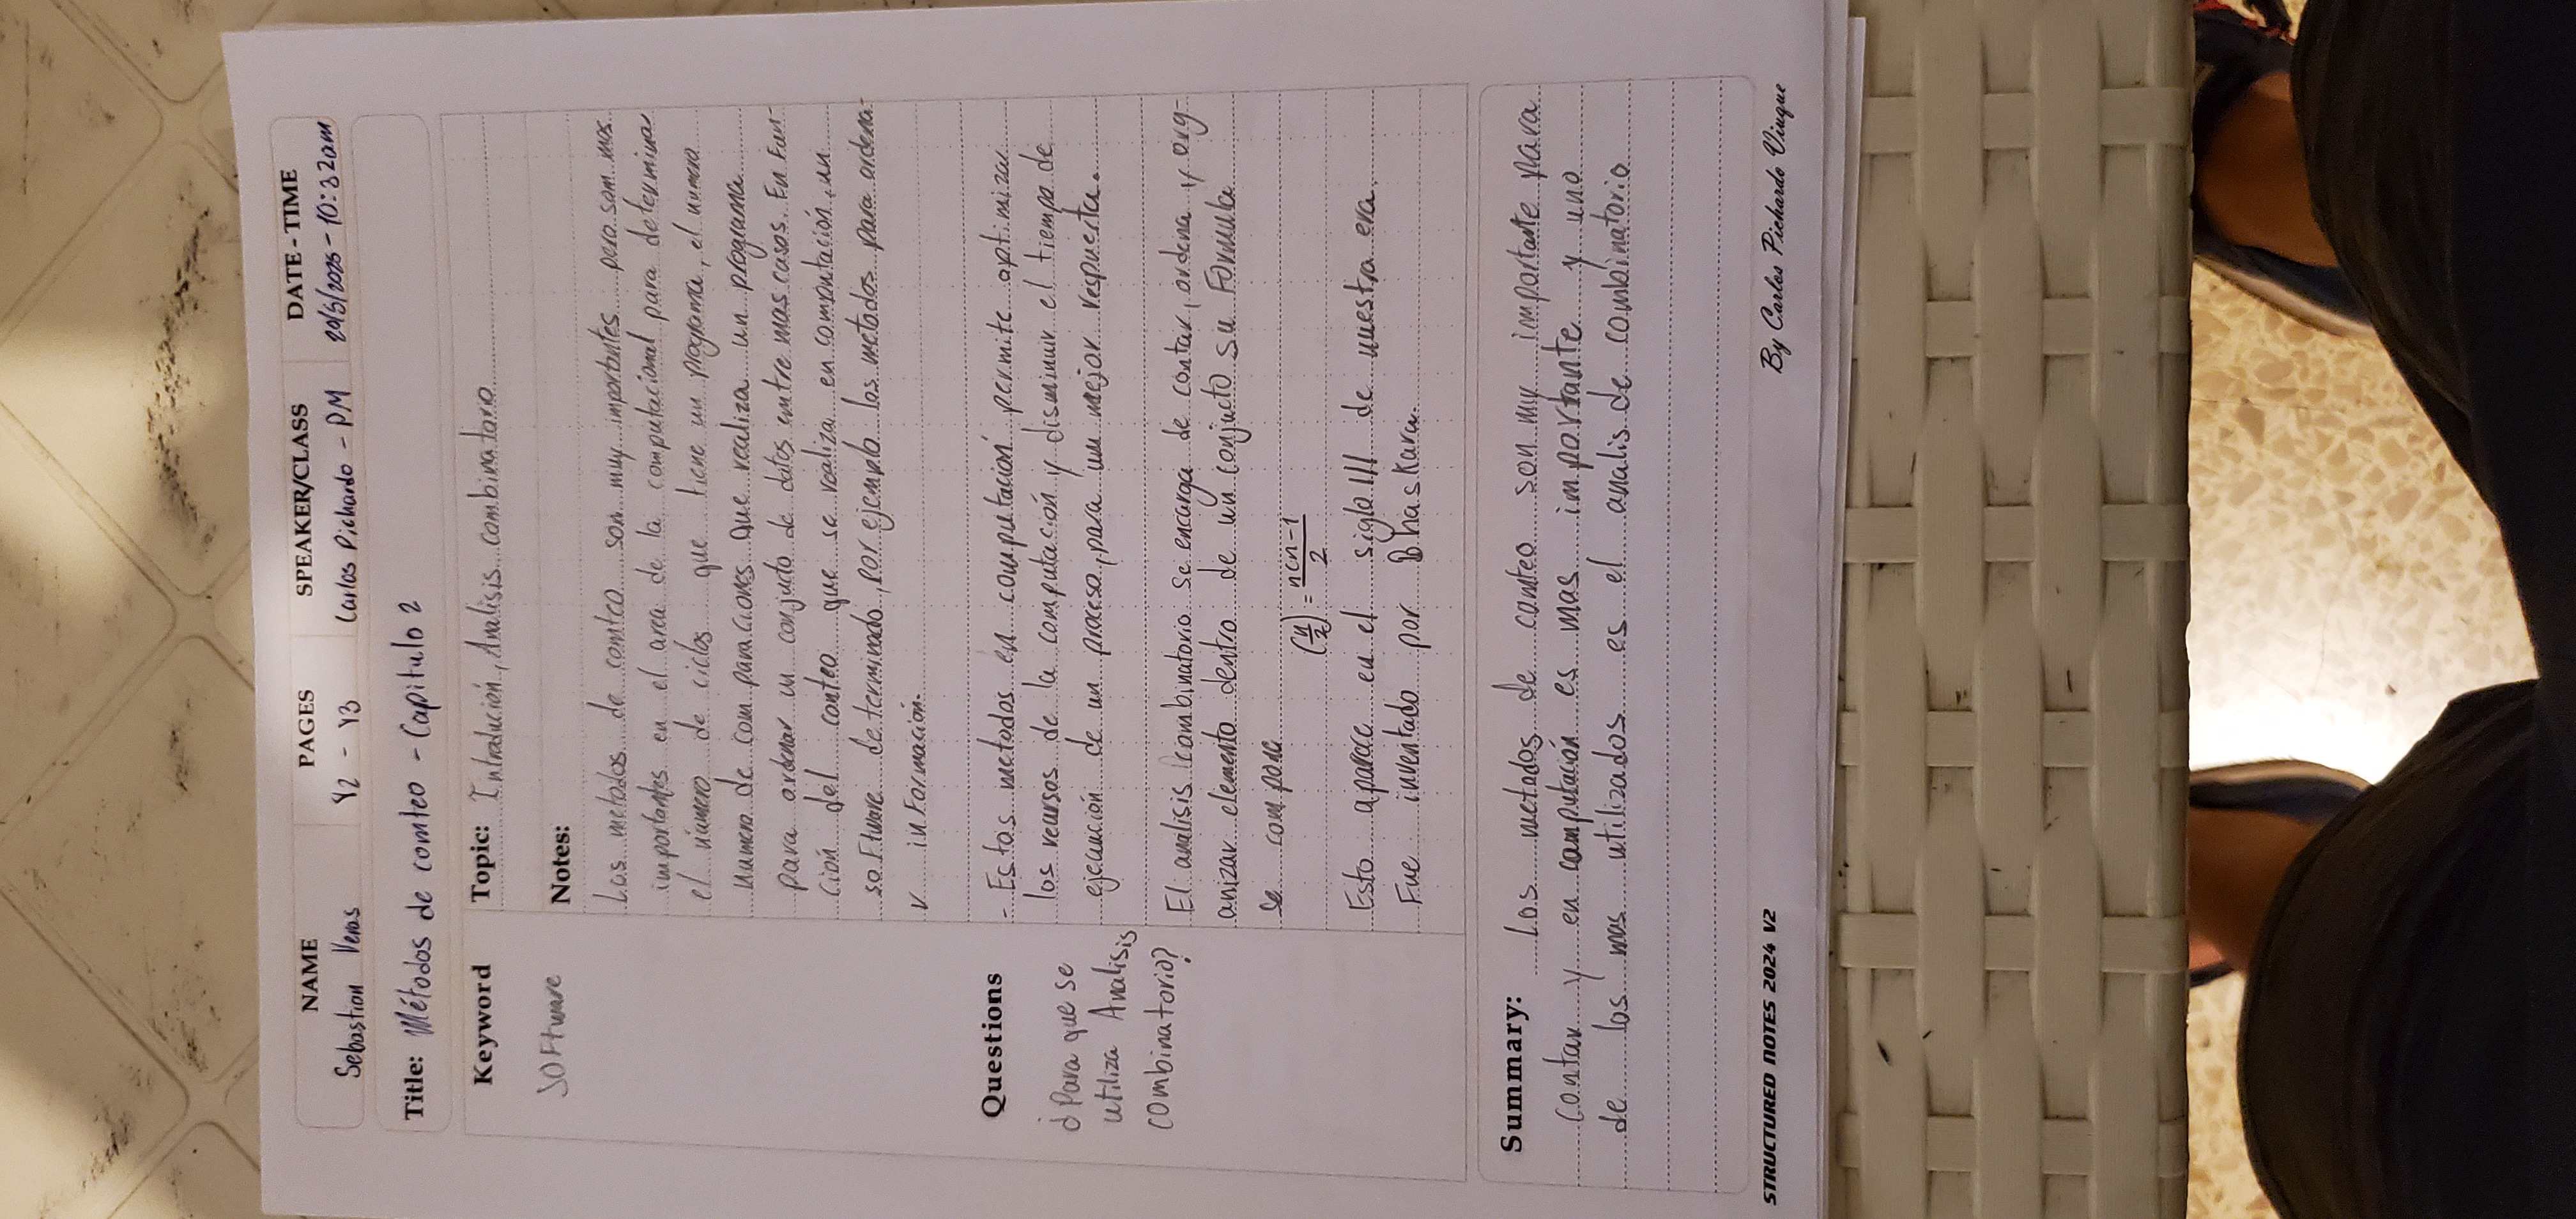 NAME PAGES SPEAKER/CLASS DATE-TIME
Sebastian Veras 42 - 43 Carlos Pichardo - PM 20/5/2025 - 10:32am
Title: Métodos de comteo - Capitulo 2
Keyword
Software
Topic: Introdución, Analisis combinatorio
Notes:
Los metodos de comteo son muy importantes pero som mas
importantes en el area de la computacional para determinar
el número de ciclos que tiene un programa, el numero
numero de comparaciones que realiza un programa
para ordenar un conjucto de datos emtre mas casos. En Fun-
ción del conteo que se realiza en computación, un
software determinado, por ejemplo los metodos para ordena-
r información.
- Estos metodos en computación permite optimizar
los recursos de la computación y disminuir el tiempo de
ejecución de un proceso, para um mejor respuesta.
El analisis combinatorio se encarga de contar, ordena y org-
anizar elemento dentro de un conjucto su Formula
se compone
(n/2) = n(n-1/2
Esto aparece en el siglo III de nuestra era.
Fue inventado por Bhaskara.
Questions
¿Para que se
utiliza Analisis
combinatorio?
Summary: Los metodos de comteo son muy importante para
contar y en computación es mas importante y uno
de los mas utilizados es el analis de combinatorio
STRUCTURED NOTES 2024 V2
By Carlos Pichardo Viuque